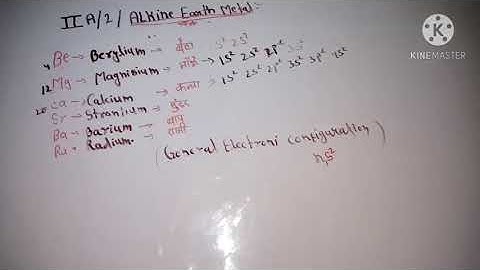 II A/2/ Alkine Earth Metal:-
4 Be → Berylium → बेटा 1S² 2S²
12 Mg → Magnisium → मांगे 1S² 2S² 2P⁶ 3S²
20 Ca → Calcium → कन्या 1S² 2S² 2P⁶ 3S² 3P⁶ 4S²
Sr → Strontium → सुंदर
Ba → Barium → बाप
Ra → Radium → राजी
(General Electroni configuration)
nS²
KINEMASTER